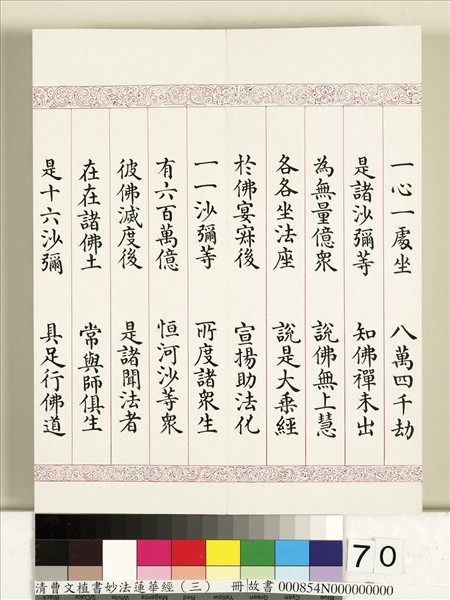 一心一處坐 八萬四千劫
是諸沙彌等 知佛禪未出
為無量億眾 說佛無上慧
各各坐法座 說是大乘經
於佛宴寂後 宣揚助法化
一一沙彌等 所度諸眾生
有六百萬億 恒河沙等眾
彼佛滅度後 是諸聞法者
在在諸佛土 常與師俱生
是十六沙彌 具足行佛道
70
清曹文埴書妙法蓮華經（三） 冊 故書 000854N000000000